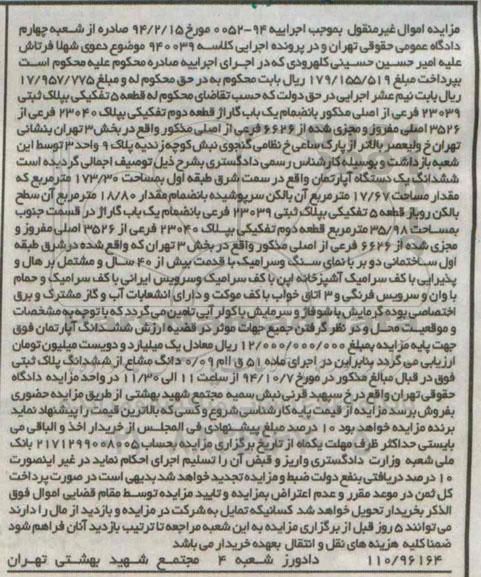 مزایده اموال غیرمنقول بموجب اجراییه ۹۴-۰۰۵۲ مورخ ۹۴/۲/۱۵ صادره از شعبه چهارم
دادگاه عمومی حقوقی تهران و در پرونده اجرایی کلاسه ۹۴۰۰۳۹ موضوع دعوی شهلا فرتاش
علیه امیر حسین حسینی کلهرودی که در اجرای اجراییه صادره محکوم علیه محکوم است
بپرداخت مبلغ ۱۷۹/۱۵۵/۵۱۹ ریال بابت محکوم به در حق محکوم له و مبلغ ۱۷/۹۵۷/۷۷۵
ریال بابت نیم عشر اجرایی در حق دولت که حسب تقاضای محکوم له قطعه ۵ تفکیکی بپلاک ثبتی
۲۳۰۳۹ فرعی از اصلی مذکور بانضمام یک باب گاراژ قطعه دوم تفکیکی بپلاک ۲۳۰۴۰ فرعی از
۳۵۲۶ اصلی مفروز و مجزی شده از ۶۶۲۶ فرعی از اصلی مذکور واقع در بخش ۳ تهران بنشانی
تهران خ ولیعصر بالاتر از پارک ساعی خ نظامی گنجوی نبش کوچه زندیه پلاک ۹ واحد ۳ توسط این
شعبه بازداشت و بوسیله کارشناس رسمی دادگستری بشرح ذیل توصیف اجمالی گردیده است
ششدانگ یک دستگاه آپارتمان واقع در سمت شرق طبقه اول بمساحت ۱۷۳/۳۰ مترمربع که
مقدار مساحت ۱۷/۶۷ مترمربع آن بالکن سرپوشیده بانضمام مقدار ۱۸/۸۰ مترمربع آن سطح
بالکن روباز قطعه ۵ تفکیکی بپلاک ثبتی ۲۳۰۳۹ فرعی بانضمام یک باب گاراژ در قسمت جنوب
بمساحت ۳۵/۹۸ مترمربع قطعه دوم تفکیکی بپلاک ۲۳۰۴۰ فرعی از ۳۵۲۶ اصلی مفروز و
مجزی شده از ۶۶۲۶ فرعی از اصلی مذکور واقع در بخش ۳ تهران که واقع شده درشرق طبقه
اول ساختمانی دو بر با نمای سنگ وسرامیک با قدمت بیش از ۴۰ سال و مشتمل بر هال و
پذیرایی با کف سرامیک آشپزخانه اپن با کف سرامیک وسرویس ایرانی با کف سرامیک و حمام
با وان و سرویس فرنگی و ۳ اتاق خواب با کف موکت و دارای انشعابات آب و گاز مشترک و برق
اختصاصی بوده گرمایش با شوفاژ و سرمایش با کولر آبی تامین می گردد که با توجه به مشخصات
و موقعیت محل و در نظر گرفتن جمیع جهات موثر در قضیه ارزش ششدانگ آپارتمان فوق
جهت پایه مزایده بمبلغ ۱۲/۰۰۰/۰۰۰/۰۰۰ ریال معادل یک میلیارد و دویست میلیون تومان
ارزیابی می گردد بنابراین در اجرای ماده ۵۱ ق اام ۰/۰۹ دانگ مشاع از ششدانگ پلاک ثبتی
فوق در قبال مبالغ مذکور در مورخ ۹۴/۱۰/۷ از ساعت ۱۱ الی ۱۱/۳۰ در واحد مزایده دادگاه
حقوقی تهران واقع در خ سپهبد قرنی نبش سمیه مجتمع شهید بهشتی از طریق مزایده حضوری
بفروش برسد مزایده از قیمت پایه کارشناسی شروع و کسی که بالاترین قیمت را پیشنهاد نماید
برنده مزایده خواهد بود ۱۰ درصد مبلغ پیشنهادی فی المجلس از خریدار اخذ و الباقی می
بایستی حداکثر ظرف مهلت یکماه از تاریخ برگزاری مزایده بحساب ۲۱۷۱۲۹۹۰۰۸۰۰۵ بانک
ملی شعبه وزارت دادگستری واریز و قبض آن را تسلیم اجرای احکام نماید در غیر اینصورت
۱۰ درصد دریافتی بنفع دولت ضبط و مزایده تجدید خواهد شد بدیهی است در صورت پرداخت
کل ثمن در موعد مقرر و عدم اعتراض بمزایده و تایید مزایده توسط مقام قضایی اموال فوق
الذکر بخریدار تحویل خواهد شد کسانیکه تمایل به شرکت در مزایده و بازدید از مال را دارند
می توانند ۵ روز قبل از برگزاری مزایده به این شعبه مراجعه تا ترتیب بازدید آنان فراهم شود
ضمنا کلیه هزینه های نقل و انتقال بعهده خریدار می باشد
۱۱۰/۹۶۱۶۴ دادورز شعبه ۴ مجتمع شهید بهشتی تهران